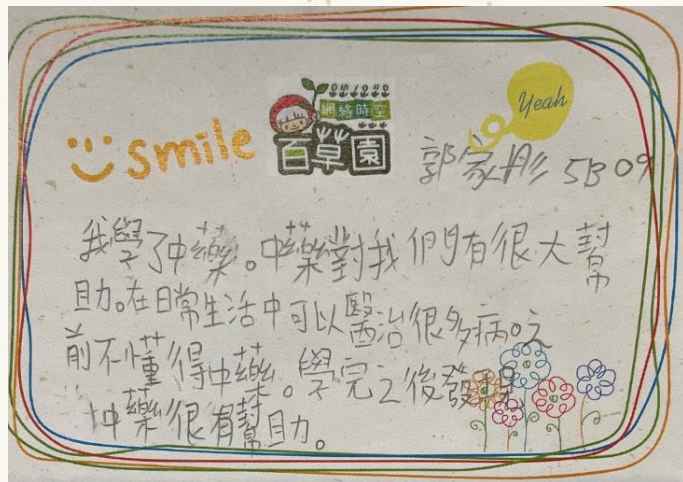 Yeah
網絡時空
smile
百草園
郭家彤 5B09
我學了中藥。中藥對我們有很大幫
助。在日常生活中可以醫治很多病
前不懂得中藥。學完之後發現
中藥很有幫助。